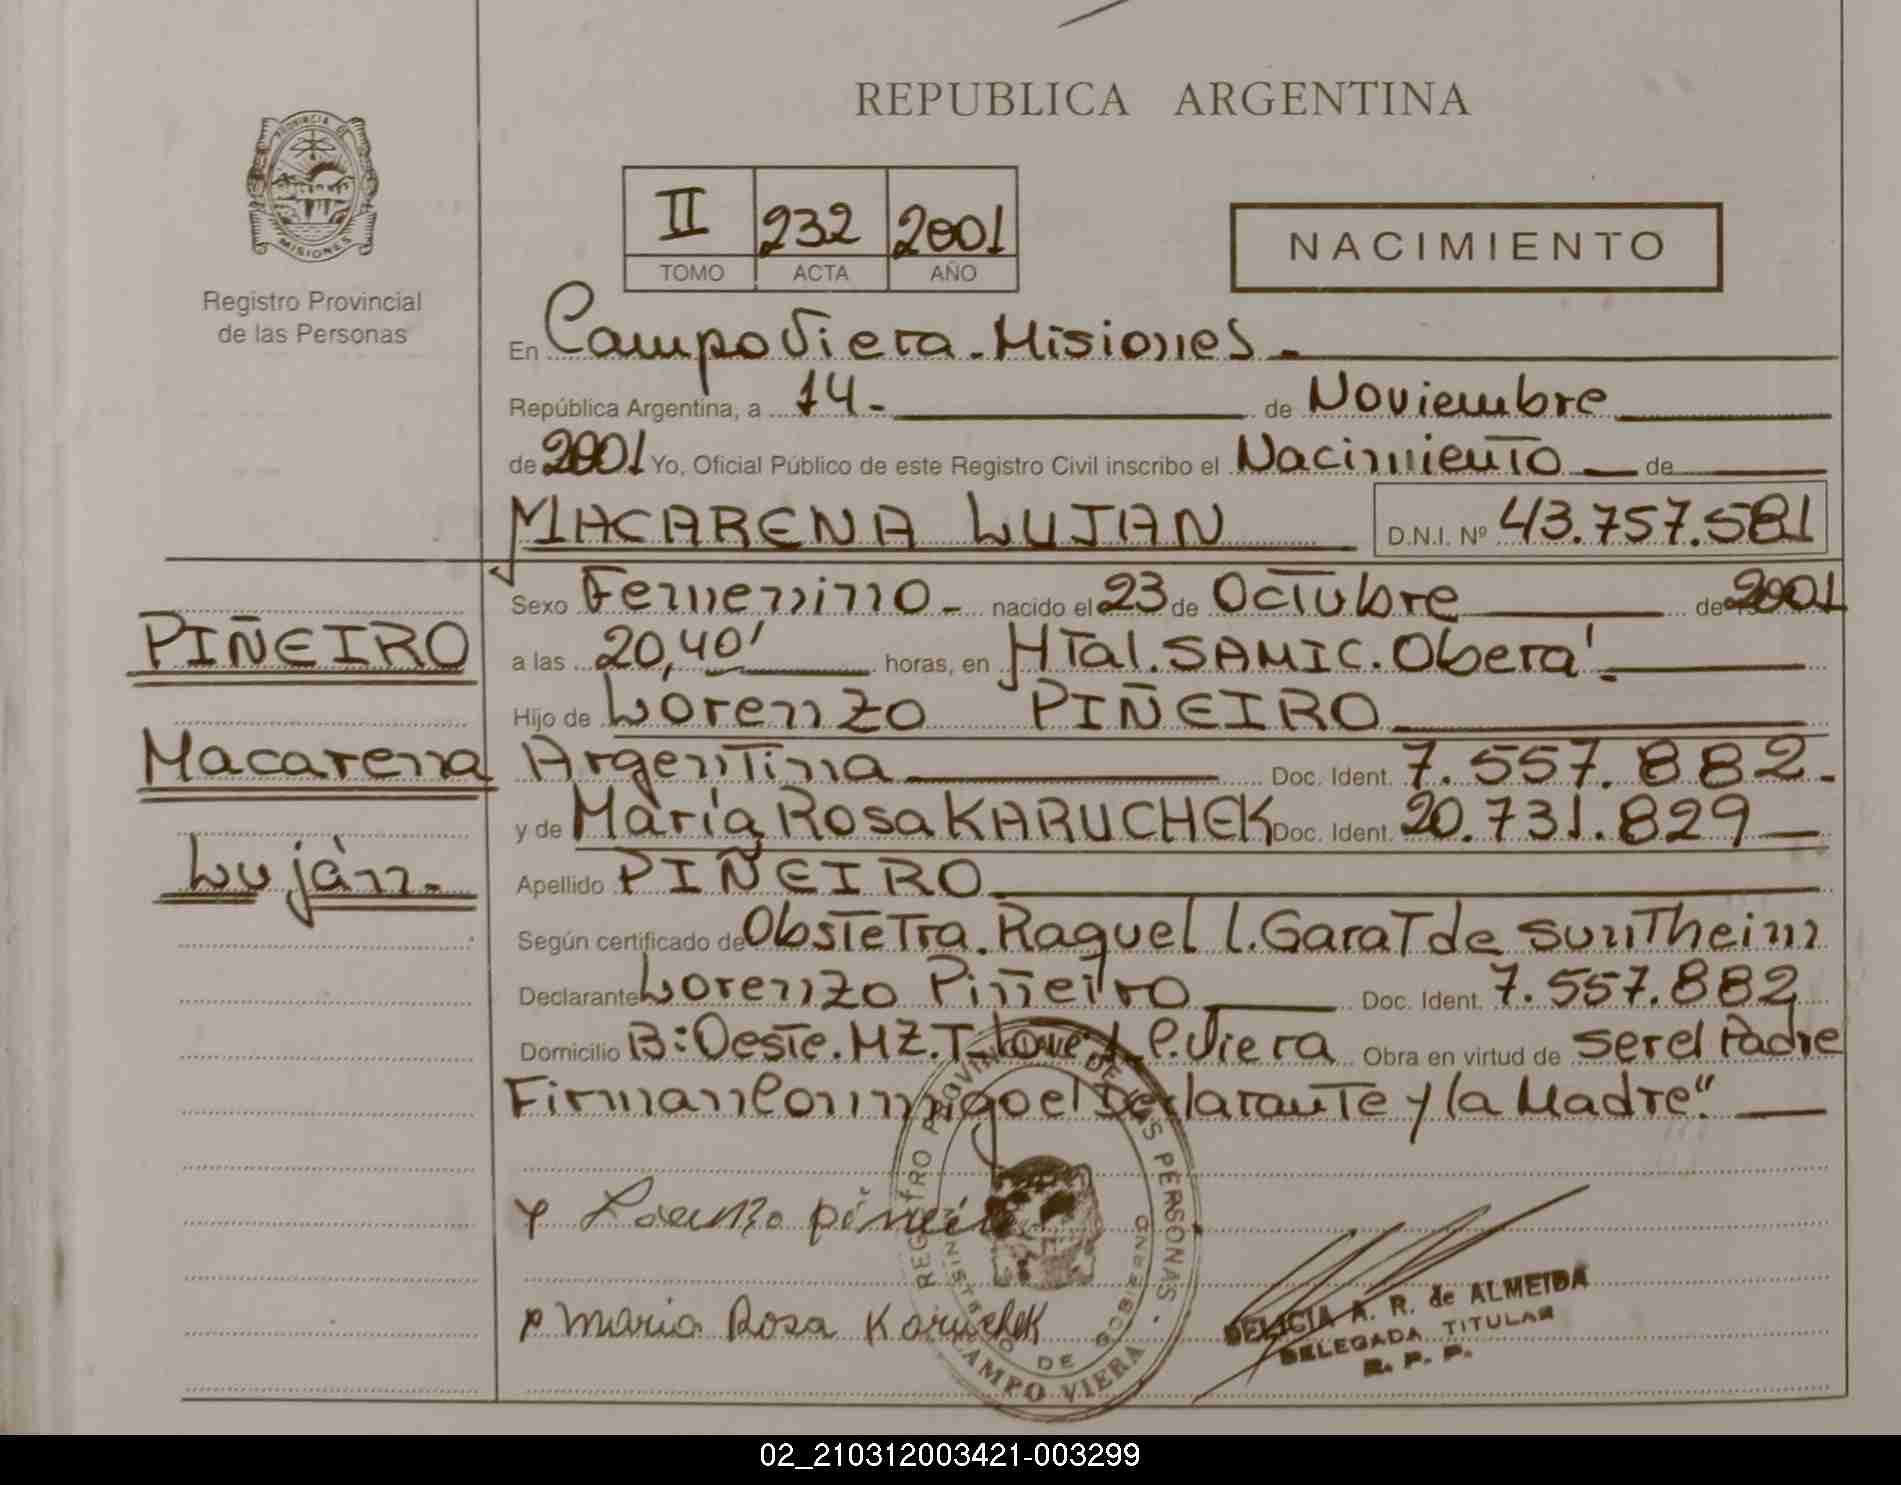 REPUBLICA ARGENTINA
PROVINCIA DE
MISIONES
Registro Provincial
de las Personas
II 232 2001
TOMO ACTA AÑO
NACIMIENTO
En Campo Viera - Misiones -
República Argentina, a 14 - de Noviembre
de 2001 Yo, Oficial Público de este Registro Civil inscribo el Nacimiento de
MACARENA LUJAN D.N.I. Nº 43.757.581
Sexo Femenino - nacido el 23 de Octubre de 2001
PIÑEIRO
a las 20,40' horas, en HTal. SAMIC. Oberá
Hijo de Lorenzo PIÑEIRO
Macarena
Argentina Doc. Ident. 7.557.882 -
y de María Rosa KARUCHEK Doc. Ident. 20.731.829
Luján -
Apellido PIÑEIRO
Según certificado de Obstetra. Raquel L. Garat de Suntheim
Declarante Lorenzo Piñeiro Doc. Ident. 7.557.882
Domicilio B: Oeste. MZ. T- C. Viera Obra en virtud de ser el Padre
Firman Conmigo el Declarante y la Madre."
Lorenzo piñeiro
Maria Rosa Karuchek
REGISTRO PROVINCIAL DE LAS PERSONAS
MINISTERIO DE GOBIERNO
CAMPO VIERA
DELICIA A. R. de ALMEIDA
DELEGADA TITULAR
R. P. P.
02_210312003421-003299